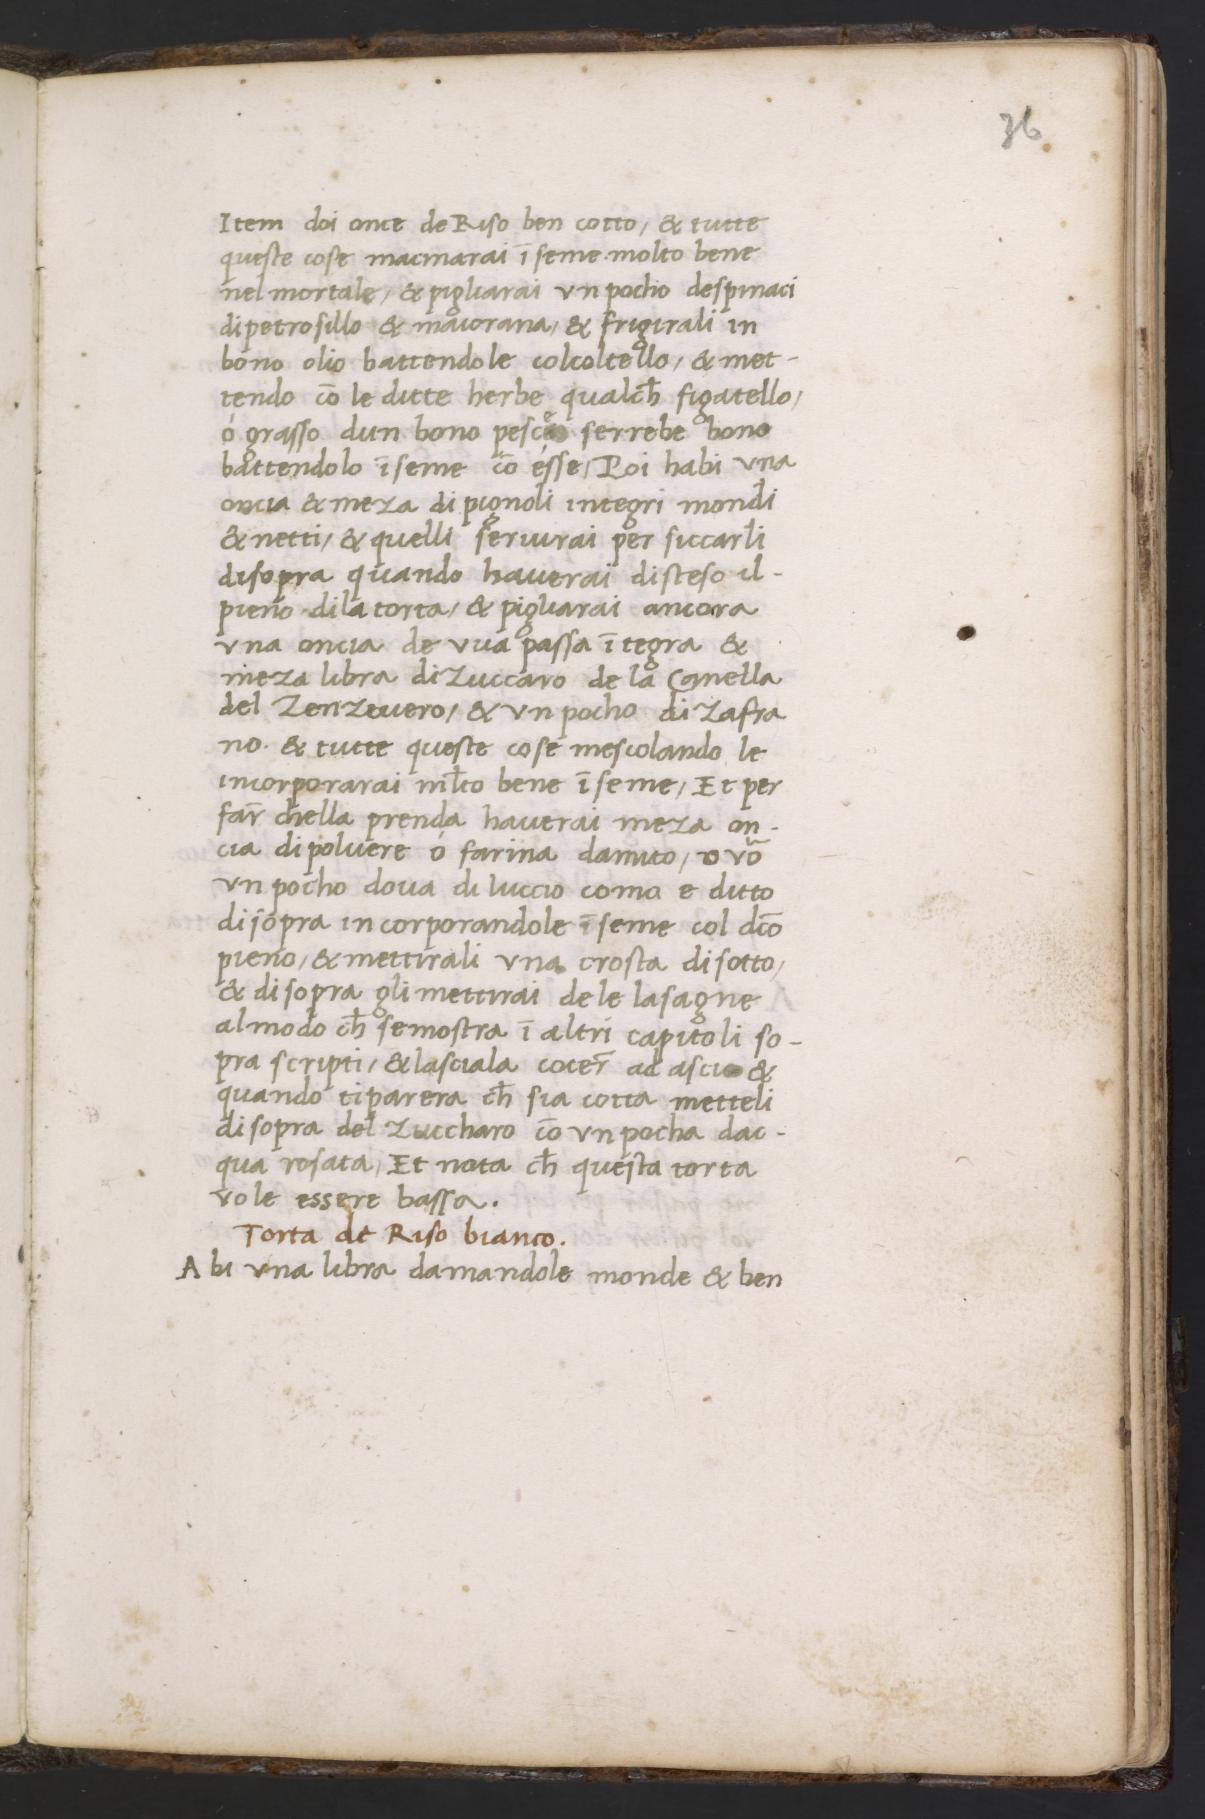 36
Item doi once de Riso ben cotto, & tutte
queste cose macinarai ĩ seme molto bene
nel mortale, & pigliarai un pocho despinaci
di petrosillo & maiorana, & frigirali in
bono olio battendole col coltello, & met-
tendo cõ le ditte herbe qualch̃ figatello,
ó grasso dun bono pesce serrebe bono
battendolo ĩ seme cõ esse, Poi habi una
oncia & meza di pignoli integri mondi
& netti, & quelli servirai per siccarli
disopra quando haverai disteso il-
pieno di la torta, & pigliarai ancora
una oncia de uva passa ĩ tegra &
meza libra di Zuccaro de la Canella
del Zenzevero, & un pocho di Zafra
no. & tutte queste cose mescolando le
incorporarai ml̃to bene ĩ seme, Et per
far̃ chella prenda haverai meza on-
cia di polvere ó farina damito, o võ
un pocho dova di luccio como e ditto
disopra in corporandole ĩ seme col dc̃o
pieno, & mettirali una crosta di sotto,
& disopra gli mettirai de le lasagne
al modo ch̃ se mostra ĩ altri capitoli so-
pra scripti, & lasciala cocer̃ ad ascio &
quando ti parera ch̃ sia cotta metteli
disopra del Zuccharo cõ un pocha dac-
qua rosata, Et nota ch̃ questa torta
vole essere bassa.
Torta de Riso bianco.
Abi una libra damandole monde & ben